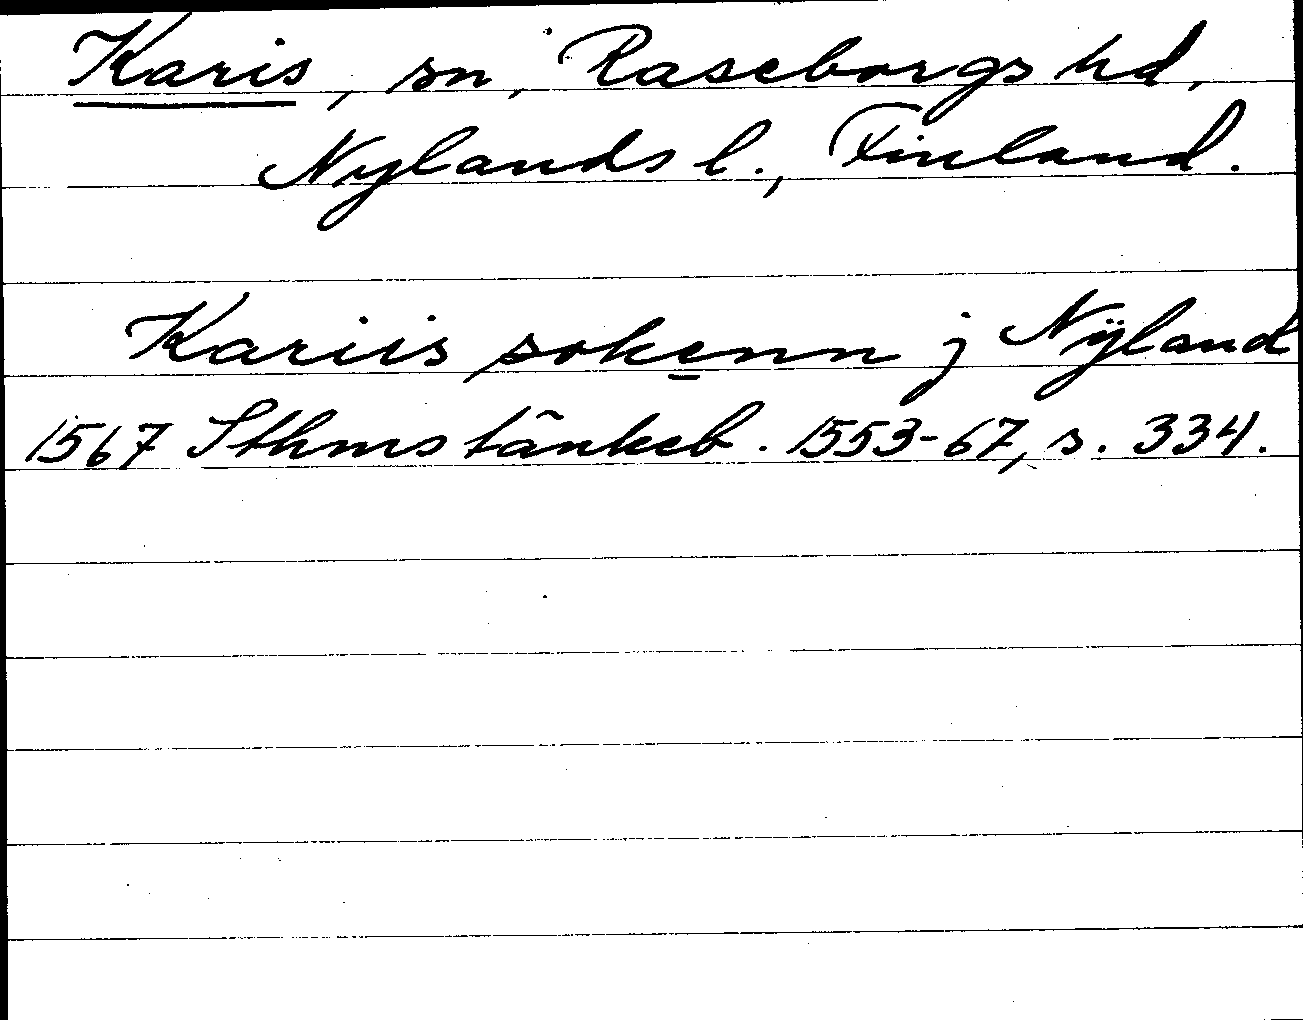 Karis, sn, Raseborgs hd,
Nylands l., Finland.
Kariis sokenn j Nÿland
1567 Sthms tänkeb. 1553-67, s. 334.